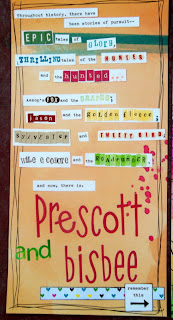 Throughout history, there have
been stories of pursuit--
EPIC tales of GLORY,
THRILLING tales of the HUNTER
and the hunted...
Aesop's FOX and the GRAPES;
Jason and the Golden Fleece;
Sylvester and TWEETY BIRD;
WILE E COYOTE and the ROADRUNNER.
and now, there is:
Prescott
and bisbee
remember
this